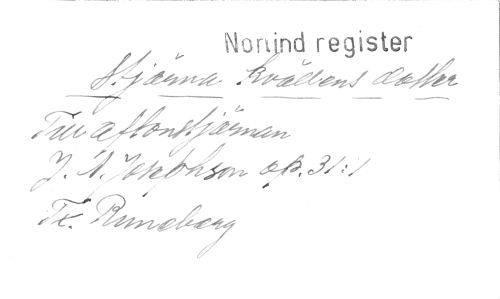 Norlind register
Stjärna kvällens dotter
Till aftonstjärnan
J. A. Josephson op. 31:1
Tx. Runeberg